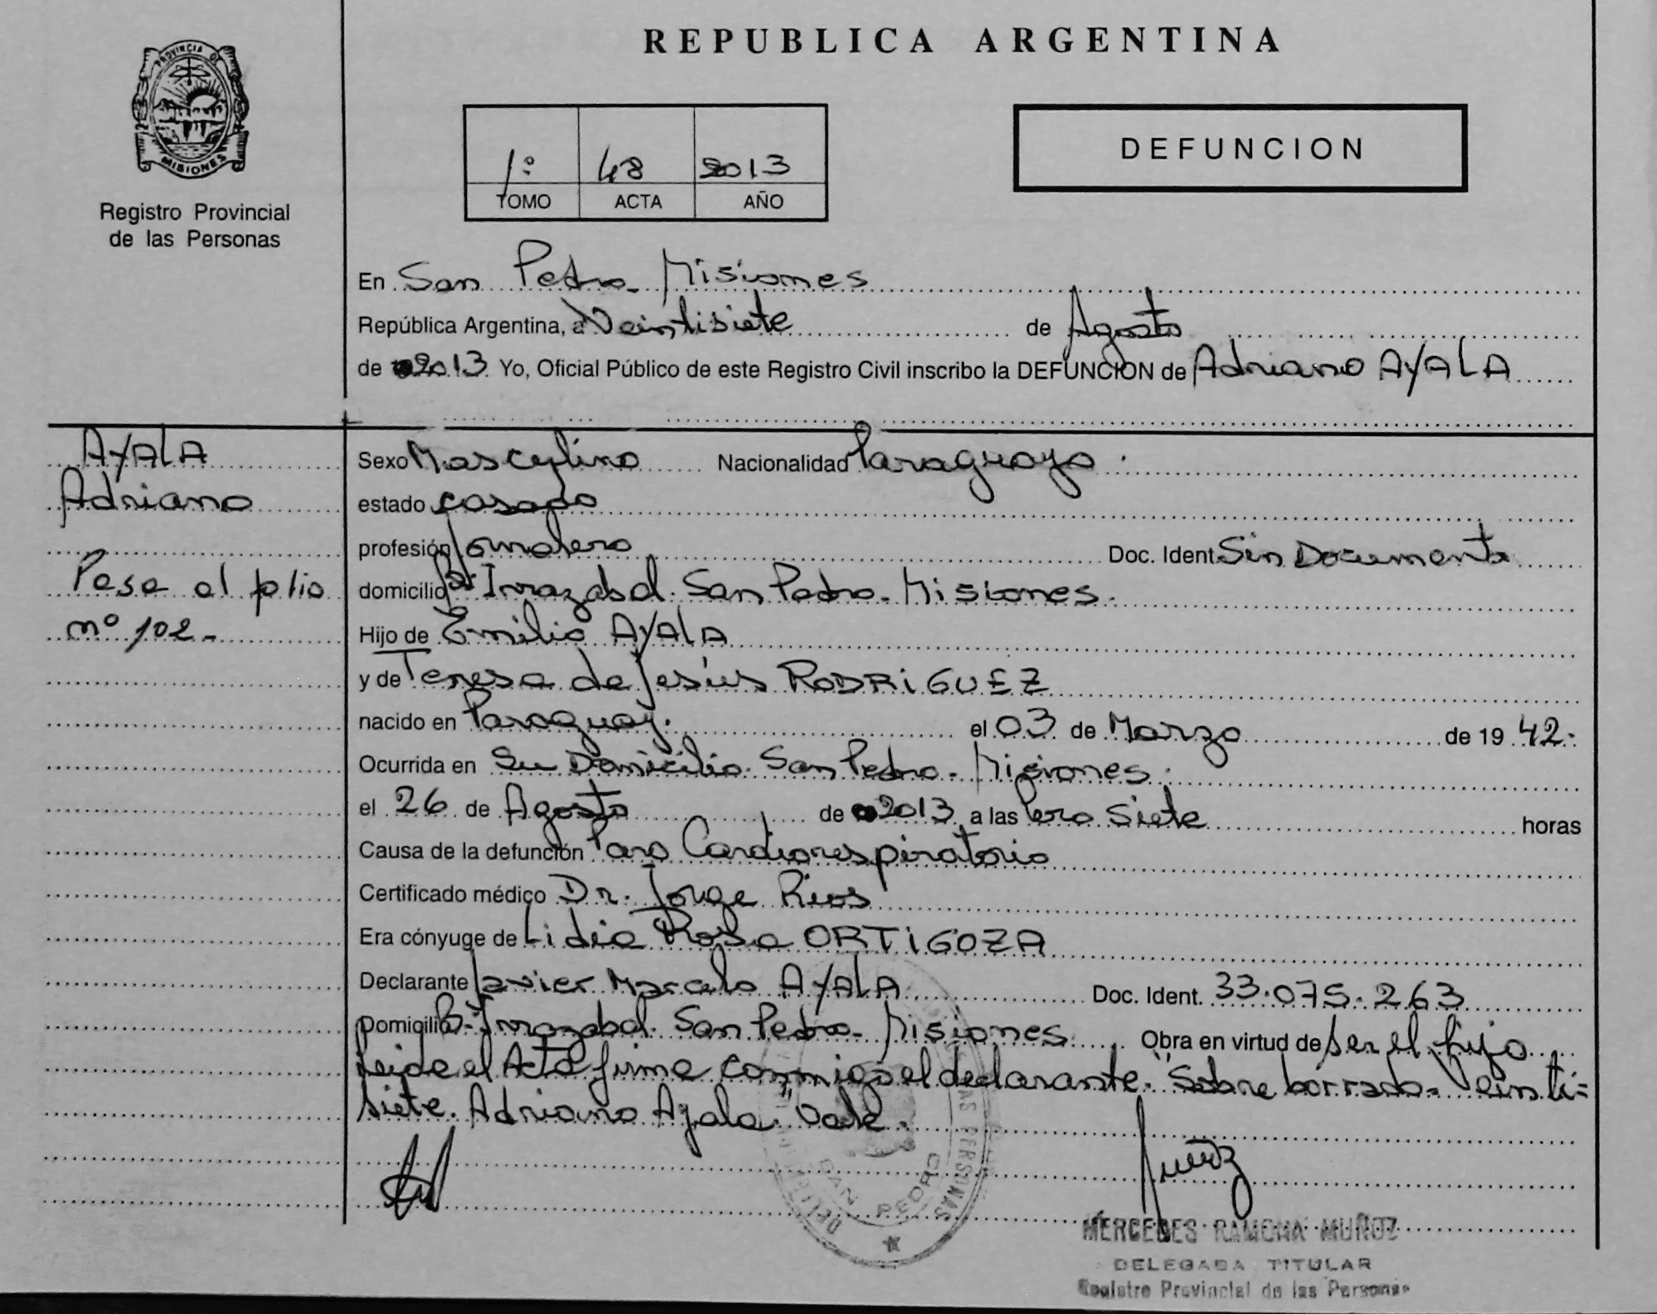 REPUBLICA ARGENTINA
PROVINCIA DE
MISIONES
Registro Provincial
de las Personas
1º 48 2013
TOMO ACTA AÑO
DEFUNCION
En San Pedro - Misiones
República Argentina, a Veintisiete de Agosto
de 2013 Yo, Oficial Público de este Registro Civil inscribo la DEFUNCION de Adriano AYALA
AYALA
Adriano
Pase al folio
nº 102 -
Sexo Masculino Nacionalidad Paraguaya.
estado casado
profesión Jornalero Doc. Ident. Sin Documento
domicilio Bº Irrazabal. San Pedro - Misiones.
Hijo de Emilio AYALA
y de Teresa de Jesús RODRIGUEZ
nacido en Paraguay. el 03 de Marzo de 19 42.
Ocurrida en Su Domicilio. San Pedro - Misiones.
el 26 de Agosto de 2013 a las Cero Siete horas
Causa de la defunción Paro Cardiorespiratorio
Certificado médico Dr. Jorge Rios
Era cónyuge de Lidia Rosa ORTIGOZA
Declarante Javier Marcelo AYALA Doc. Ident. 33.075.263
Domicilio Bº Irrazabal. San Pedro - Misiones Obra en virtud de ser el hijo
leida el Acta firma conmigo el declarante. "Sobre borrado - Veinti=
siete. Adriano Ayala" Vale.
SAN PEDRO
MERCEDES RAMONA MUÑOZ
DELEGADA TITULAR
Registro Provincial de las Personas